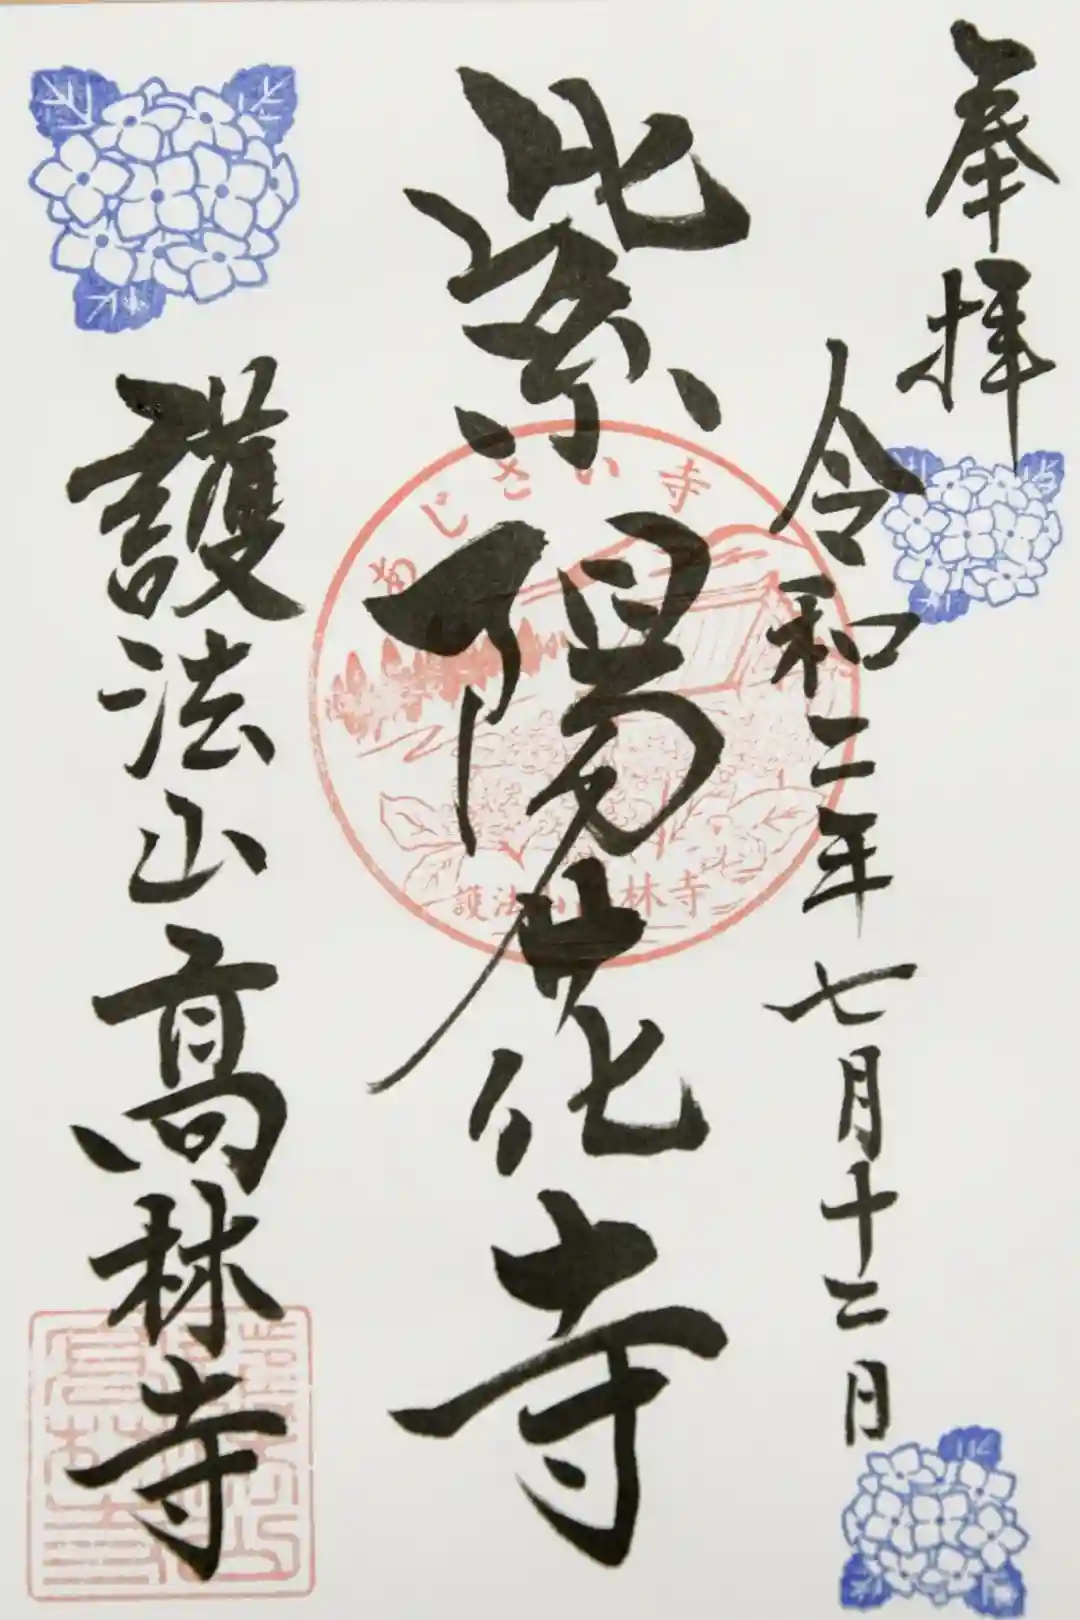 奉拝
令和二年七月十二日
紫陽花寺
あじさい寺
護法山高林寺
護法山高林寺